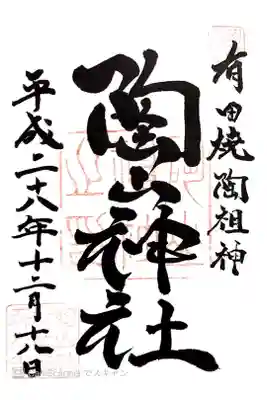 有田焼陶祖神
陶山神社
平成二十八年十二月十八日
でスキャン